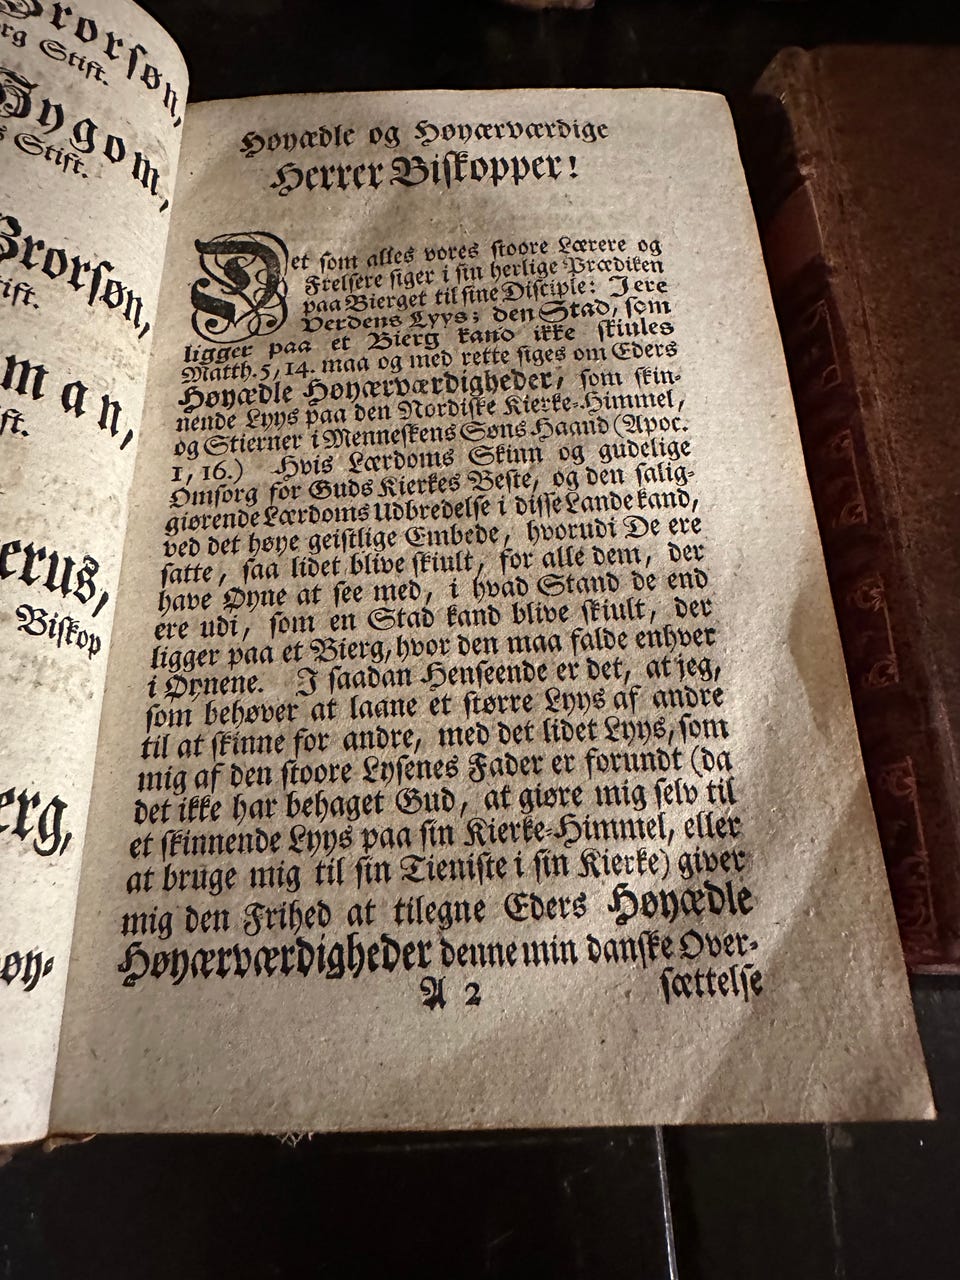 Brorsøn,
rg Stift.
Hygom,
s Stift.
Brorsøn,
ift.
man,
ft.
erus,
Biskop
erg,
øy-
Høyædle og Høyærværdige
Herrer Biskopper!
Det som alles vores stoore Lærere og
Frelsere siger i sin herlige Prædiken
paa Bierget til sine Disciple: I ere
Verdens Lyys; den Stad, som
ligger paa et Bierg kand ikke skiules
Matth. 5, 14. maa og med rette siges om Eders
Høyædle Høyærværdigheder, som skin-
nende Lyys paa den Nordiske Kierke-Himmel,
og Stierner i Menneskens Søns Haand (Apoc.
1, 16.) Hvis Lærdoms Skinn og gudelige
Omsorg for Guds Kierkes Beste, og den salig-
giørende Lærdoms Udbredelse i disse Lande kand,
ved det høye geistlige Embede, hvorudi De ere
satte, saa lidet blive skiult, for alle dem, der
have Øyne at see med, i hvad Stand de end
ere udi, som en Stad kand blive skiult, der
ligger paa et Bierg, hvor den maa falde enhver
i Øynene. I saadan Henseende er det, at jeg,
som behøver at laane et større Lyys af andre
til at skinne for andre, med det lidet Lyys, som
mig af den stoore Lysenes Fader er forundt (da
det ikke har behaget Gud, at giøre mig selv til
et skinnende Lyys paa sin Kierke-Himmel, eller
at bruge mig til sin Tieniste i sin Kierke) giver
mig den Frihed at tilegne Eders Høyædle
Høyærværdigheder denne min danske Over-
A 2 sættelse